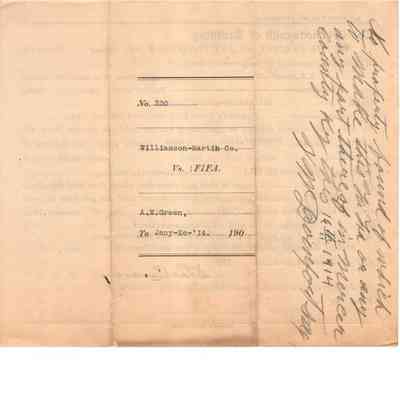 No. 330
Williamson-Martin Co.
Vs. : FIFA.
A.W.Green,
To Jany-20-'14. 190
No property found of which
to make this fi fa or any
any part thereof in Mercer
County Ky Feb 16th 1914